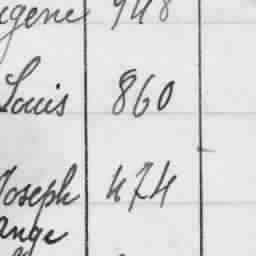 ugene 948
Louis 860
Joseph 474
ange